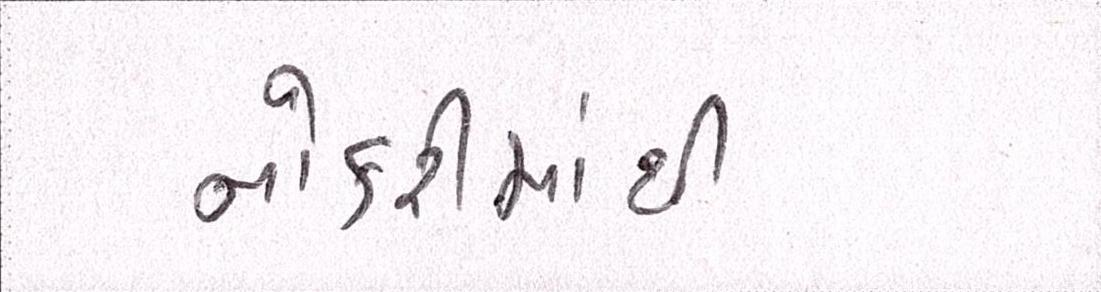 નોકરીમાંથી